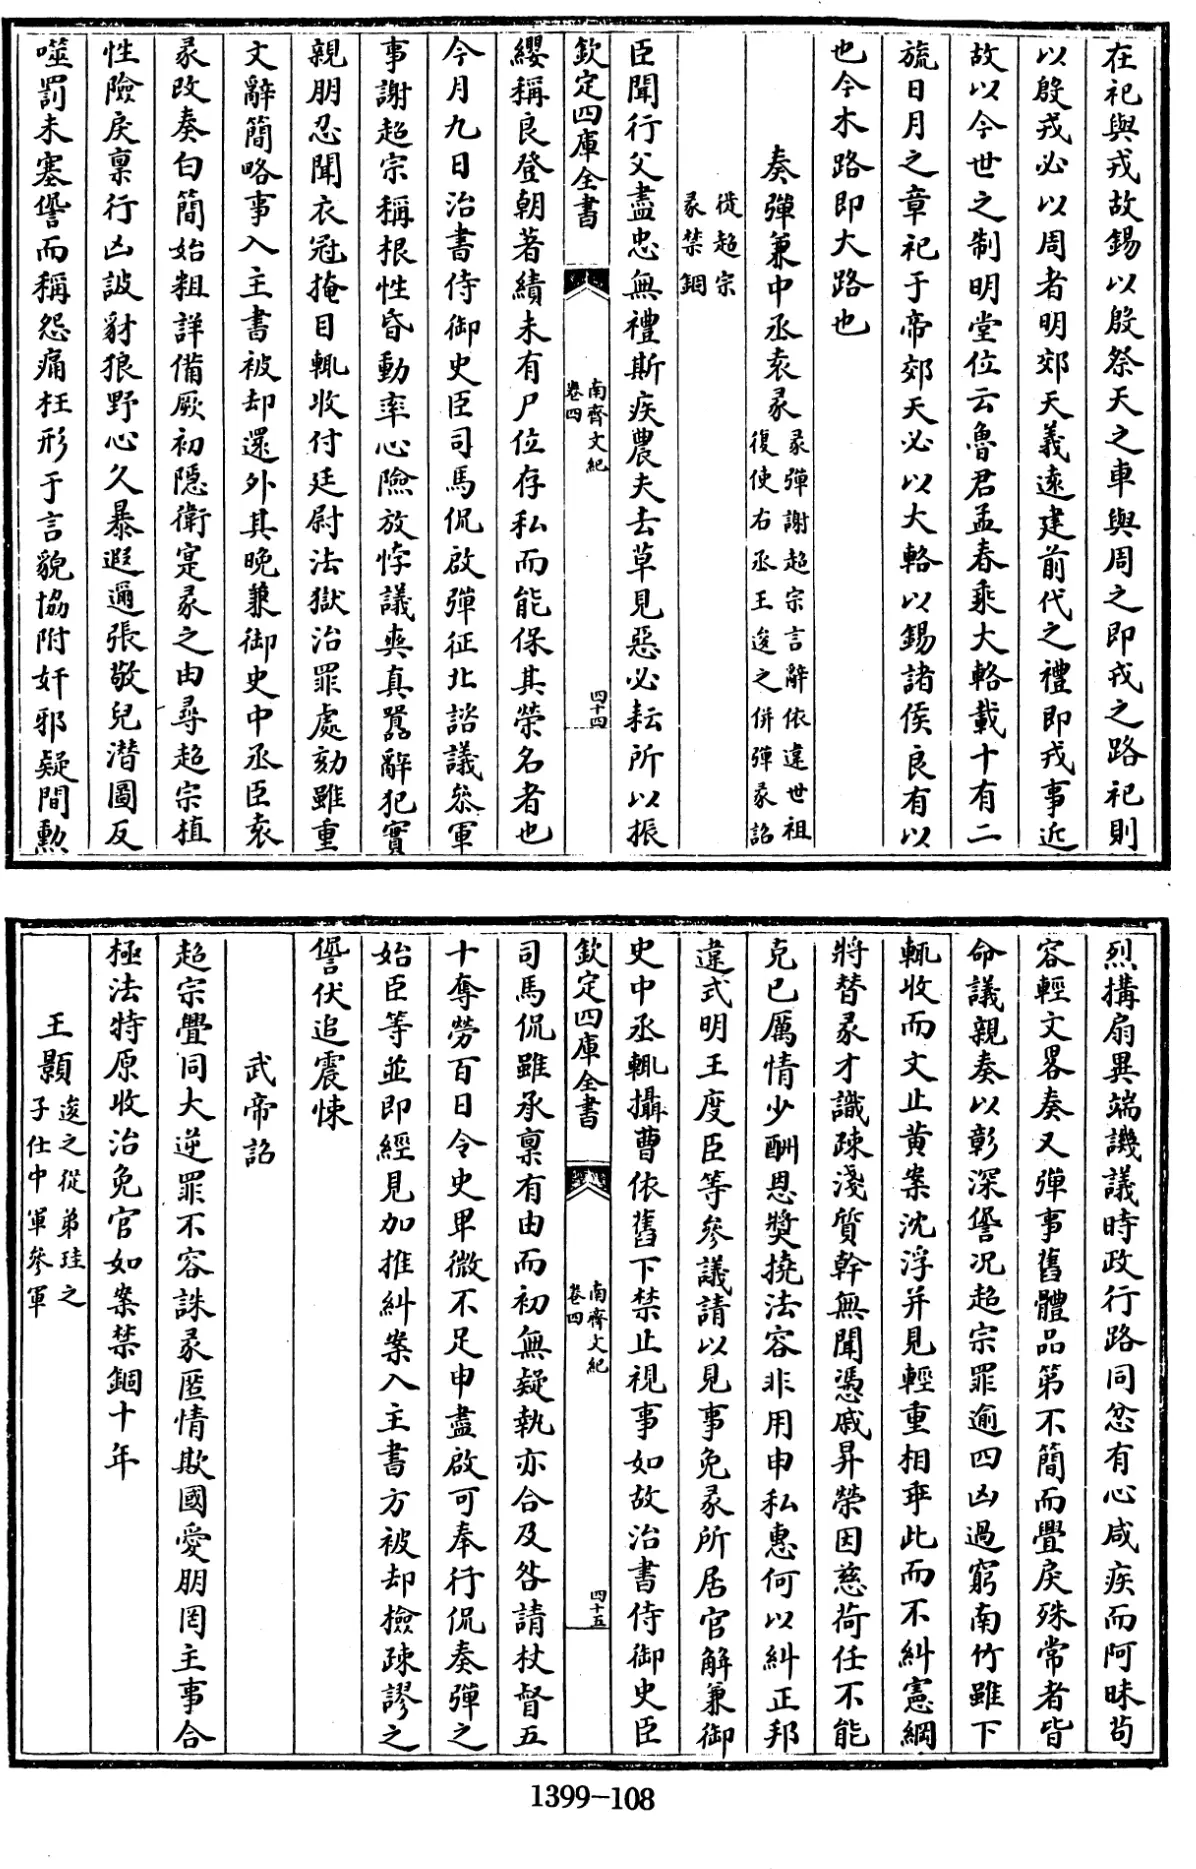 在祀與戎故錫以殷祭天之車與周之即戎之路祀則
以殷戎必以周者明郊天義遠建前代之禮即戎事近
故以今世之制明堂位云魯君孟春乘大輅載十有二
旒日月之章祀于帝郊天必以大輅以錫諸侯良有以
也今木路即大路也
奏彈兼中丞袁彖
彖彈謝超宗言辭依違世祖
復使右丞王逡之併彈彖詔
徙超宗
彖禁錮
臣聞行父盡忠無禮斯疾農夫去草見惡必耘所以振
欽定四庫全書
南齊文紀
卷四
四十四
纓稱良登朝著績未有尸位存私而能保其榮名者也
今月九日治書侍御史臣司馬侃啟彈征北諮議叅軍
事謝超宗稱根性昏動率心險放悖議爽真嚚辭犯實
親朋忍聞衣冠掩目輒收付廷尉法獄治罪處劾雖重
文辭簡略事入主書被却還外其晚兼御史中丞臣袁
彖改奏白簡始粗詳備厥初隱衛寔彖之由尋超宗植
性險戾稟行凶詖豺狼野心久暴遐邇張敬兒潛圖反
噬罰未塞諐而稱怨痛枉形于言貌協附奸邪疑間勲
烈搆扇異端譏議時政行路同忿有心咸疾而阿昧苟
容輕文畧奏又彈事舊體品第不簡而釁戾殊常者皆
命議親奏以彰深諐况超宗罪逾四凶過窮南竹雖下
輒收而文止黄案沈浮并見輕重相乖此而不糾憲綱
將替彖才識疎淺質幹無聞憑戚昇榮因慈荷任不能
克已厲情少酬恩奬撓法容非用申私惠何以糾正邦
違式明王度臣等參議請以見事免彖所居官解兼御
史中丞輒攝曹依舊下禁止視事如故治書侍御史臣
欽定四庫全書
南齊文紀
卷四
四十五
司馬侃雖承稟有由而初無疑執亦合及咎請杖督五
十奪勞百日令史卑微不足申盡啟可奉行侃奏彈之
始臣等並即經見加推糾案入主書方被却檢疎謬之
諐伏追震悚
武帝詔
超宗釁同大逆罪不容誅彖匿情欺國愛朋罔主事合
極法特原收治免官如案禁錮十年
王顥
逡之從弟珪之
子仕中軍參軍
1399-108